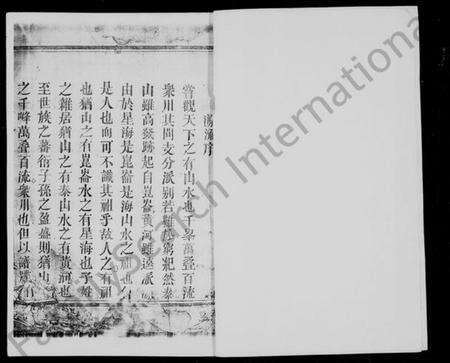 源流序
嘗觀天下之有山水也千峯萬疊百流
衆川其間支分派別若難窮紀然泰
山雖高發跡起自崑崙黃河雖遠派
由於星海是崑崙是海山水之祖也
是人也而可不識其祖乎故人之有祖
也猶山之有崑崙水之有星海也子姓
之雜居猶山之有泰山水之有黃河也
至世族之蕃衍子孫之盈盛則猶山
之千峰萬疊百流衆川也但以譜
FamilySearch International